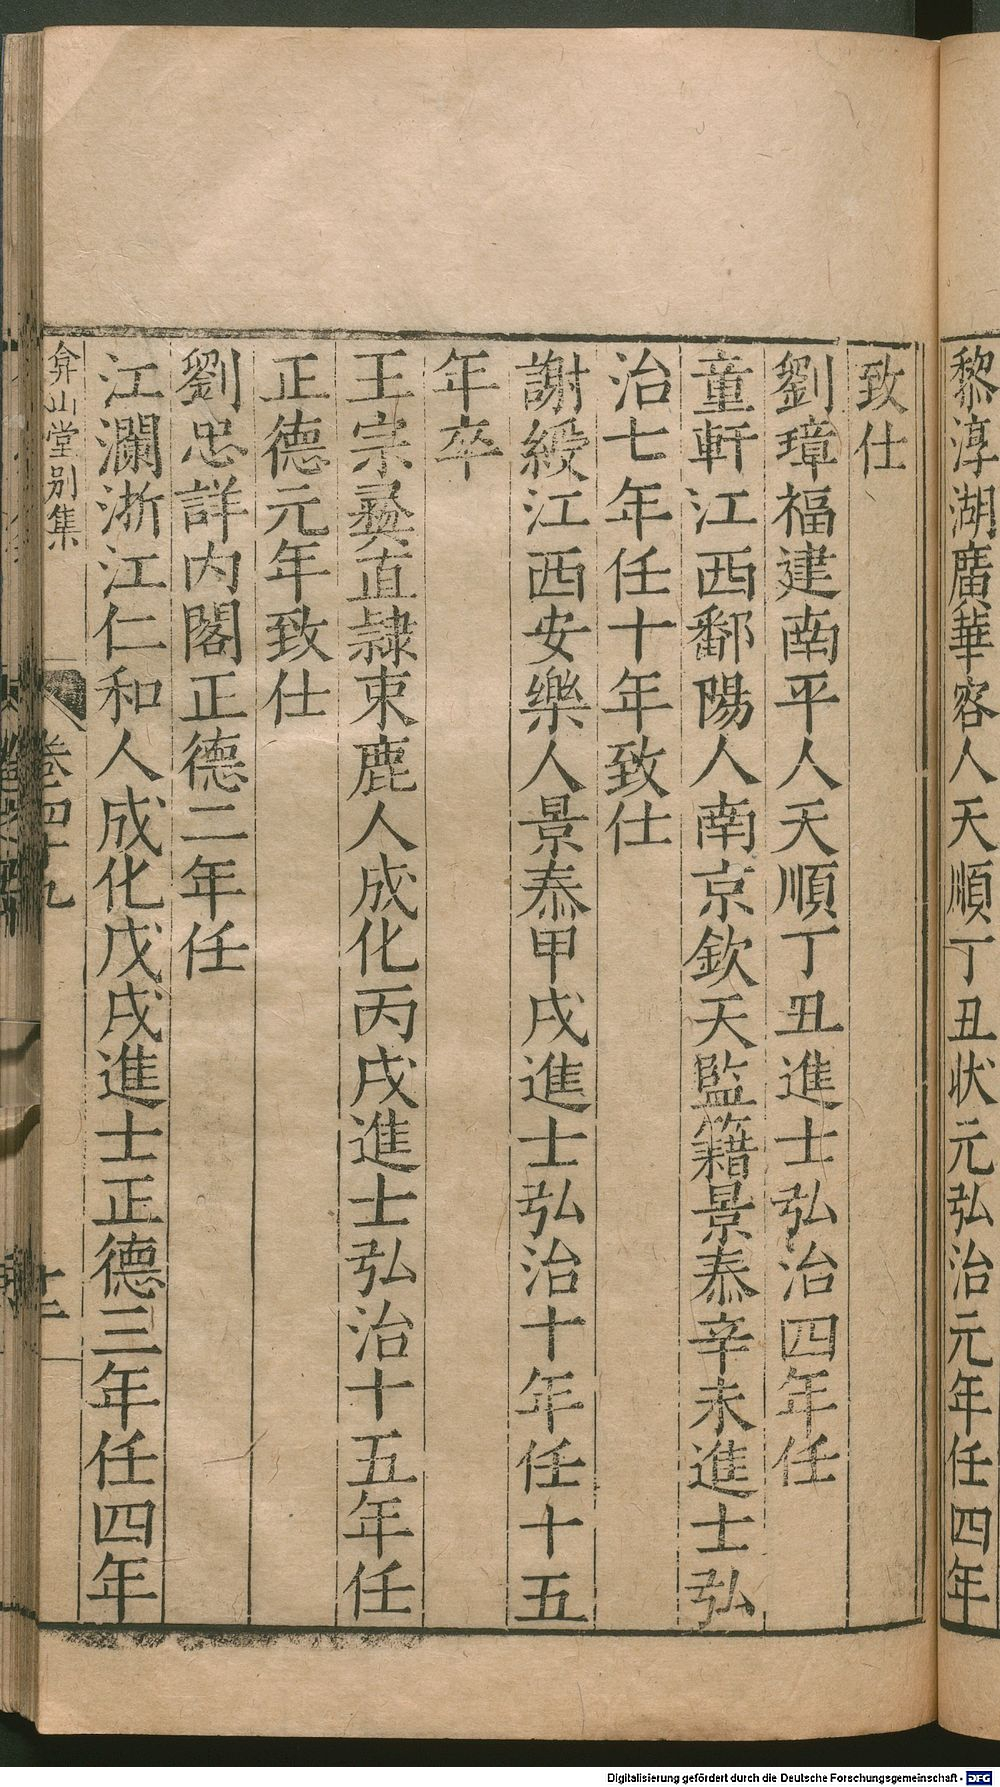 黎淳湖廣華容人天順丁丑状元弘治元年任四年
致仕
劉璋福建南平人天順丁丑進士弘治四年任
童軒江西鄱陽人南京欽天監籍景泰辛未進士弘
治七年任十年致仕
謝綬江西安樂人景泰甲戌進士弘治十年任十五
年卒
王宗彝直隷束鹿人成化丙戌進士弘治十五年任
正德元年致仕
劉忠詳内閣正德二年任
江瀾浙江仁和人成化戊戌進士正德三年任四年
弇山堂别集
卷四十九
十二
Digitalisierung gefördert durch die Deutsche Forschungsgemeinschaft - DFG